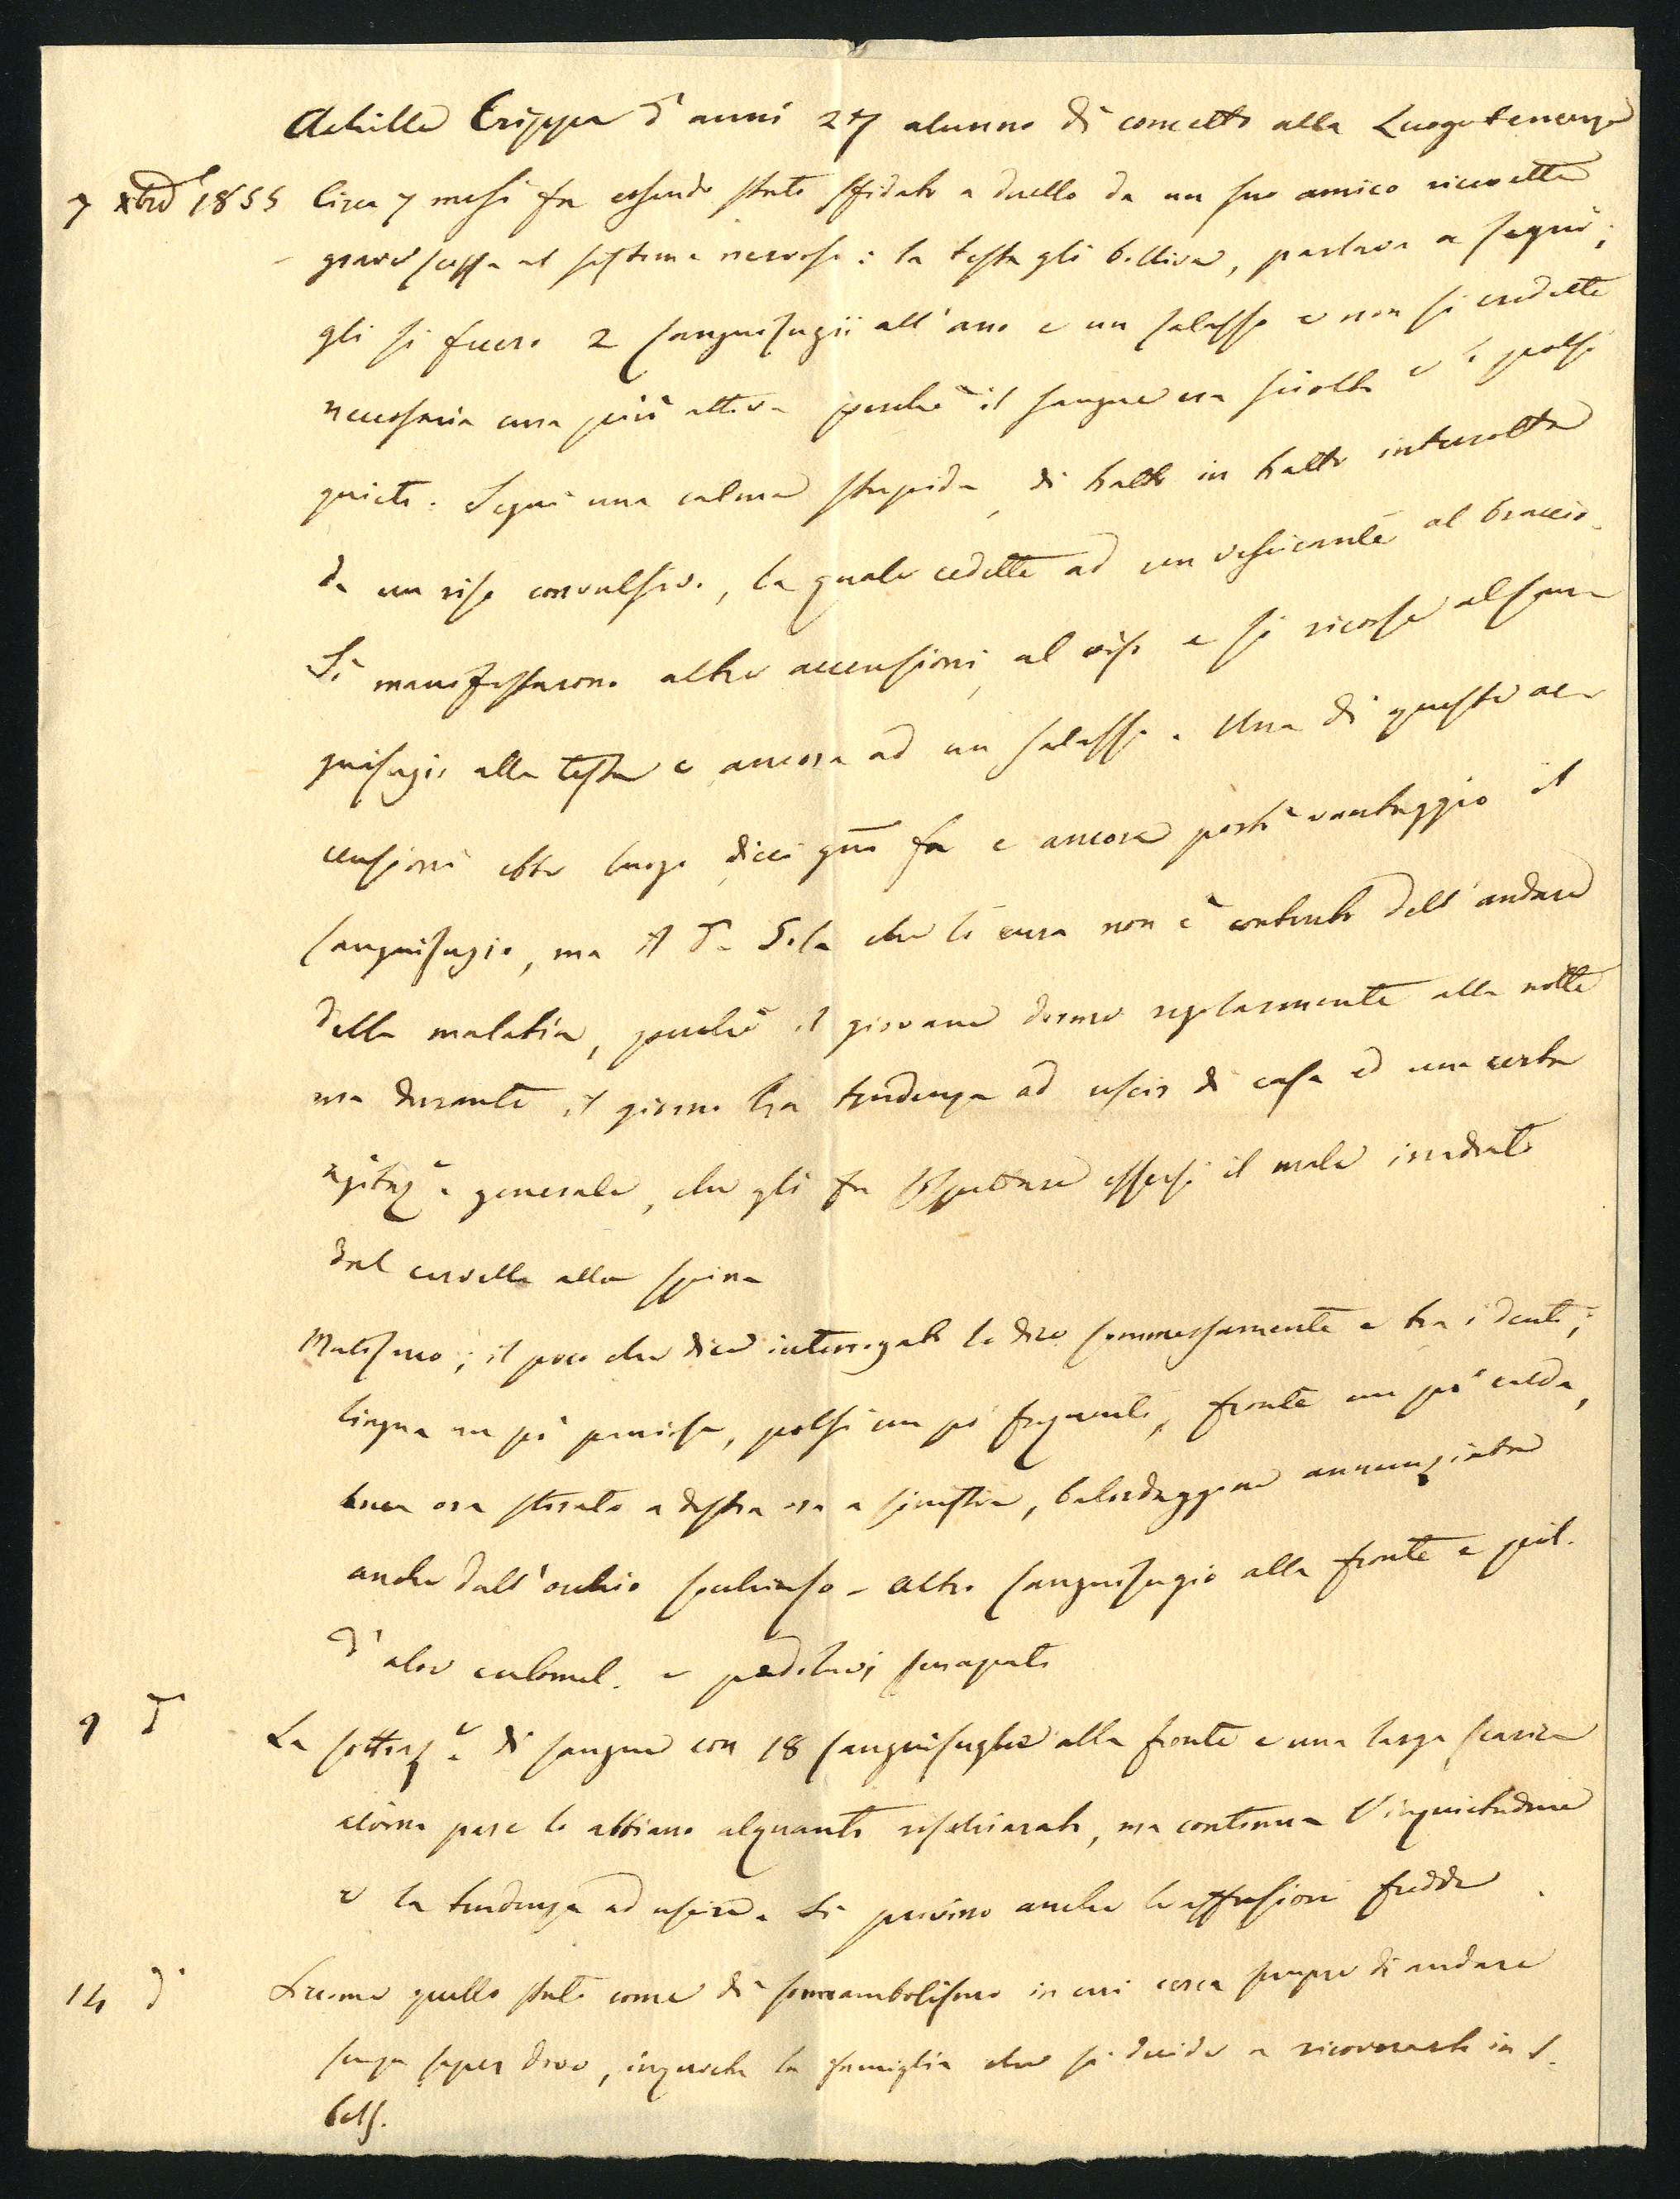 Achille Crippa d'anni 27 alunno di concetto alla Luogotenenza
7 xbre 1855 Circa 7 mesi fa essendo stato sfidato a duello da un suo amico ricevette
grave scossa al sistema nervoso: la testa gli bolliva, parlava a segno;
gli si fecero 2 sanguisugii all'ano e un salasso e non si credette
necessaria cura più attiva perchè il sangue era sciolto e i polsi
quieti. Seguì una calma stupida, di tratto in tratto interrotta
da un riso convulsivo, la quale cedette ad un vescicante al braccio.
Si manifestarono altre accensioni al viso e si ricorse al san-
guisugio alla testa e ancora ad un salasso. Una di queste ac-
censioni ebbe luogo dieci gni fa e ancora portò vantaggio il
sanguisugio, ma il Dr. Sola che lo cura non è contento dell'andare
della malatia, perchè il giovane dorme regolarmente alla notte
ma durante il giorno ha tendenza ad uscir di casa ed una certa
agitaze generale, che gli fa sospettare essersi il male irradiato
dal cervello alla spina
Mutismo; il poco che dice interrogato lo dice sommessamente e tra i denti;
lingua un pò paniosa, polsi un pò frequenti, fronte un pò calda,
bocca ora stirata a destra ora a sinistra, balordaggine annunziata
anche dall'occhio socchiuso - Altro sanguisugio alla fronte e pil.
d'aloe calomel. e pediluvi senapati
9 d La sottraze di sangue con 18 sanguisughe alla fronte e una larga scarica
alvina pare lo abbiano alquanto rischiarato, ma continua l'inquietudine
e la tendenza ad uscire. Si provino anche le affusioni fredde.
14 d Siccome quello stato come di sonnambolismo in cui cerca sempre di andare
senza saper dove, inquieta la famiglia che si decide a ricoverarlo in S.
Cels.